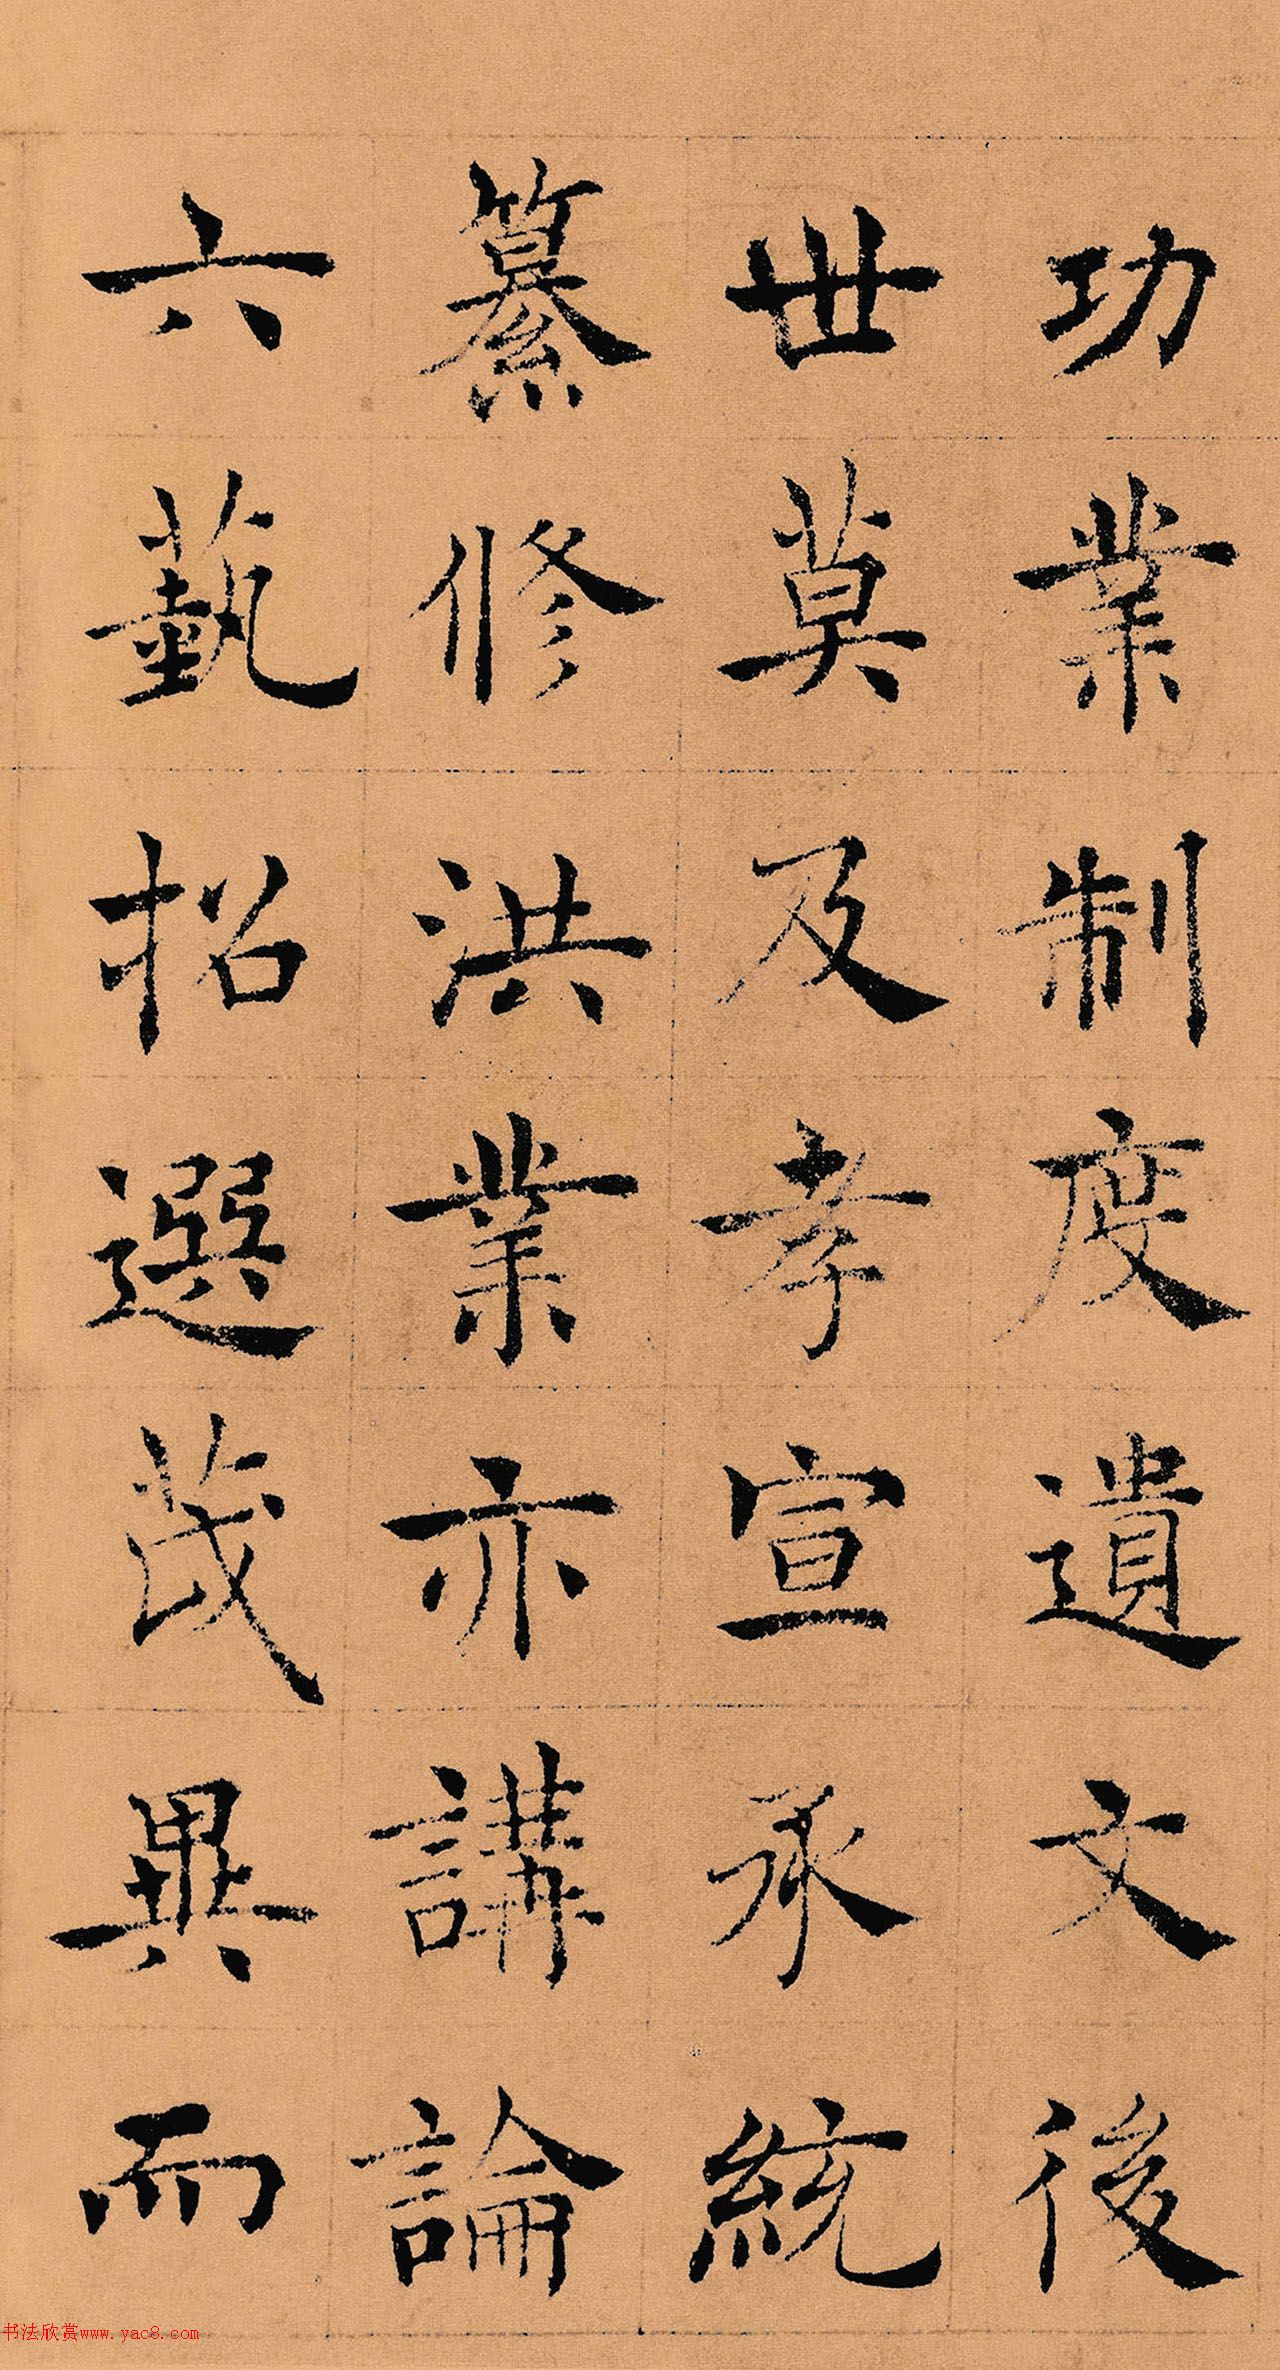 功業制度遺文後
世莫及孝宣承統
纂修洪業亦講論
六藝招選茂異而
书法欣赏www.yac8.com